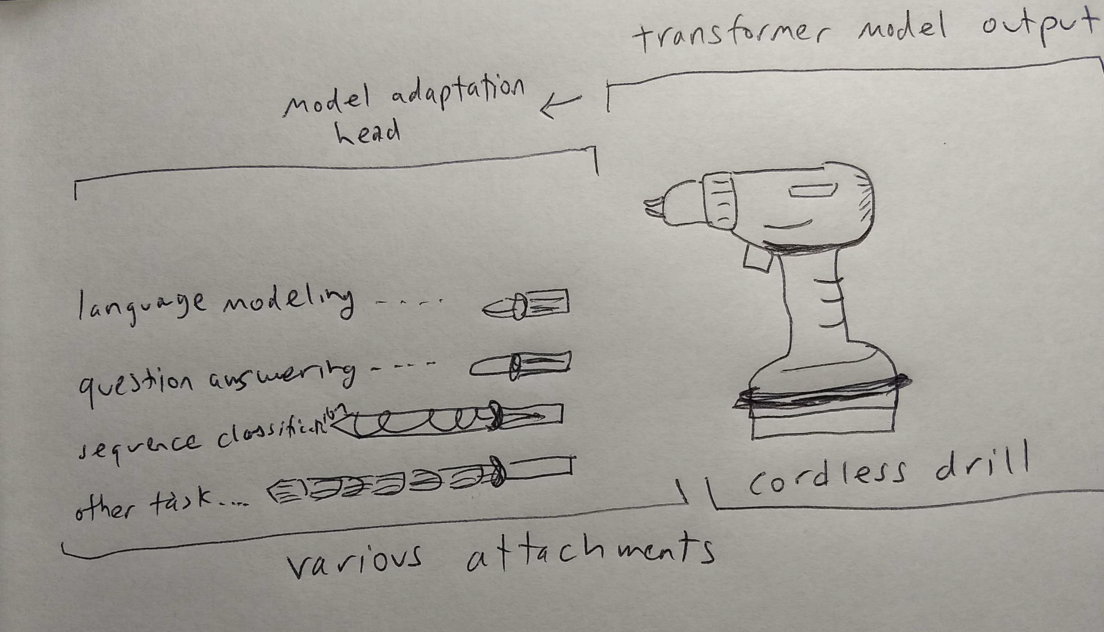 transformer model output
model adaptation
head
language modeling ----
question answering ----
sequence classification
other task....
cordless drill
various attachments